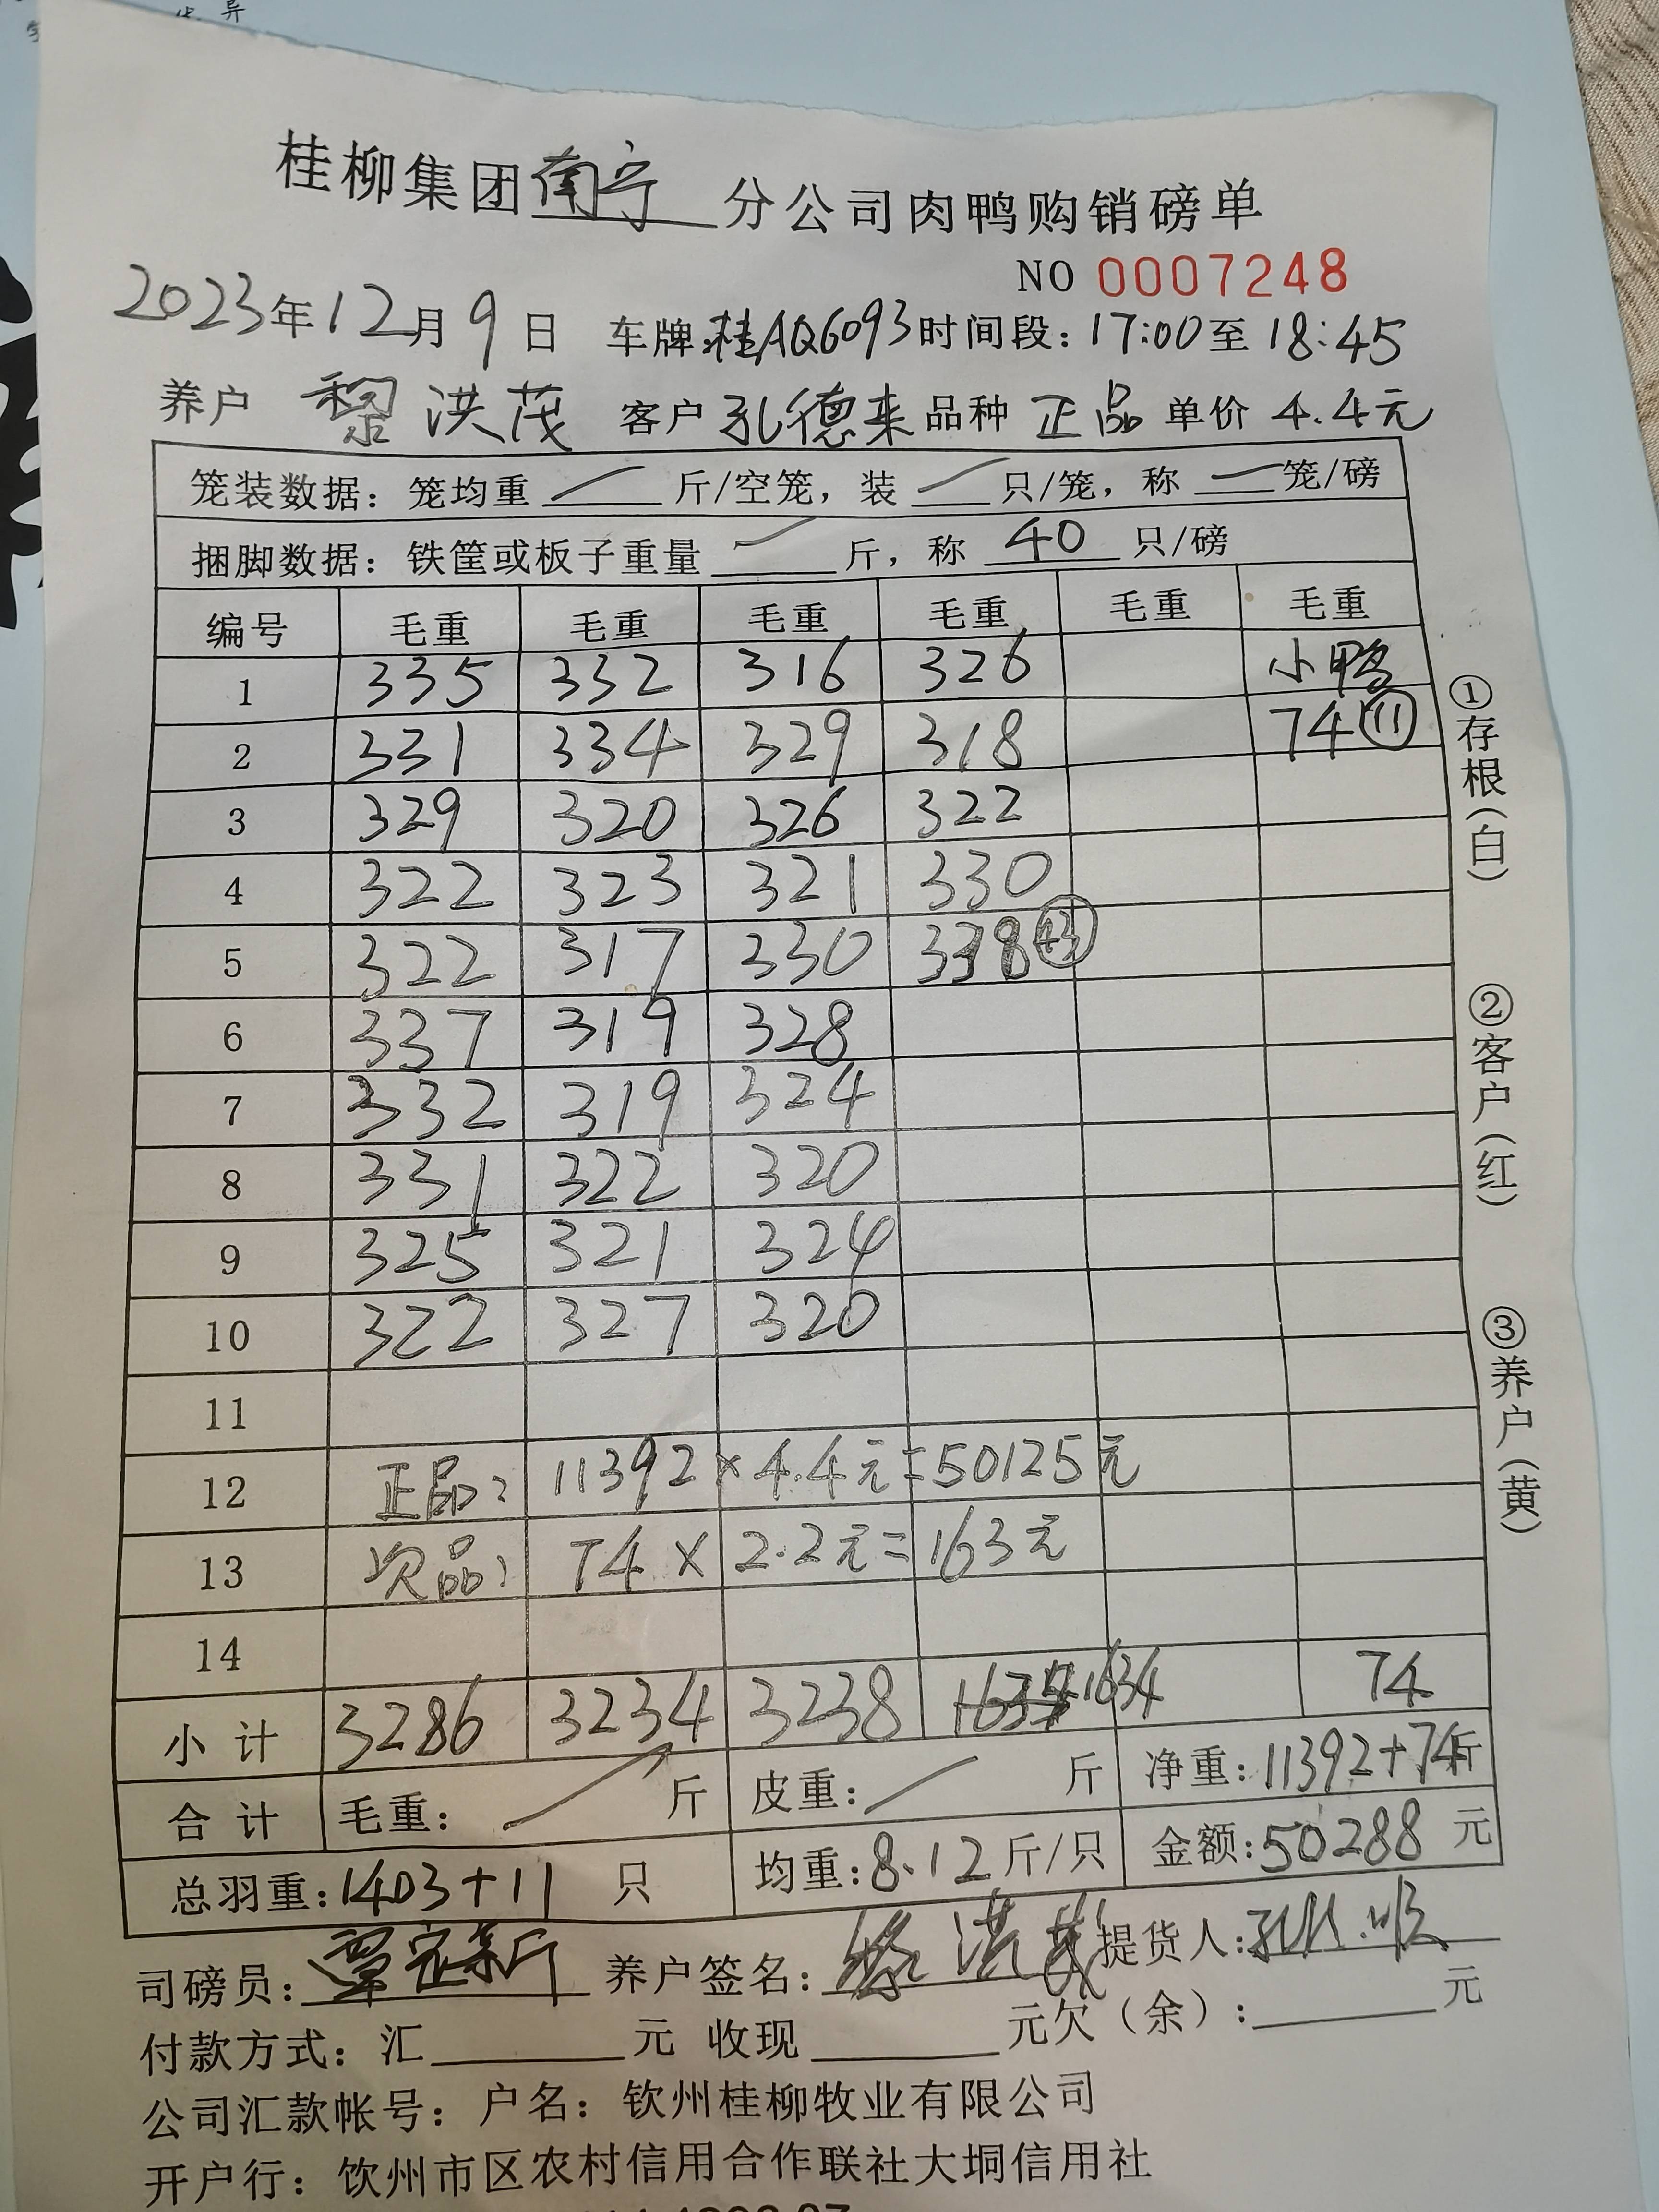 桂柳集团南宁分公司肉鸭购销磅单
NO 0007248
2023年12月9日 车牌:桂AQ6093时间段:17:00至18:45
养户 黎洪茂 客户 孔德来 品种 正品 单价 4.4元
笼装数据:笼均重 斤/空笼,装 只/笼,称 笼/磅
捆脚数据:铁筐或板子重量 斤,称 40 只/磅
编号 毛重 毛重 毛重 毛重 毛重 毛重
1 335 332 316 326 小鸭
2 331 334 329 318 74 (11)
3 329 320 326 322
4 322 323 321 330
5 322 317 330 338 (43)
6 337 319 328
7 332 319 324
8 331 322 320
9 325 321 324
10 322 327 320
11
12 正品: 11392×4.4元=50125元
13 次品: 74×2.2元=163元
14
小计 3286 3234 3238 1634 74
合计 毛重: 斤 皮重: 斤 净重:11392+74斤
总羽重:1403+11 只 均重:8.12斤/只 金额:50288元
司磅员: 养户签名:黎洪茂 提货人:
付款方式:汇 元 收现 元欠(余): 元
公司汇款帐号:户名:钦州桂柳牧业有限公司
开户行:饮州市区农村信用合作联社大垌信用社
①存根(白)
②客户(红)
③养户(黄)